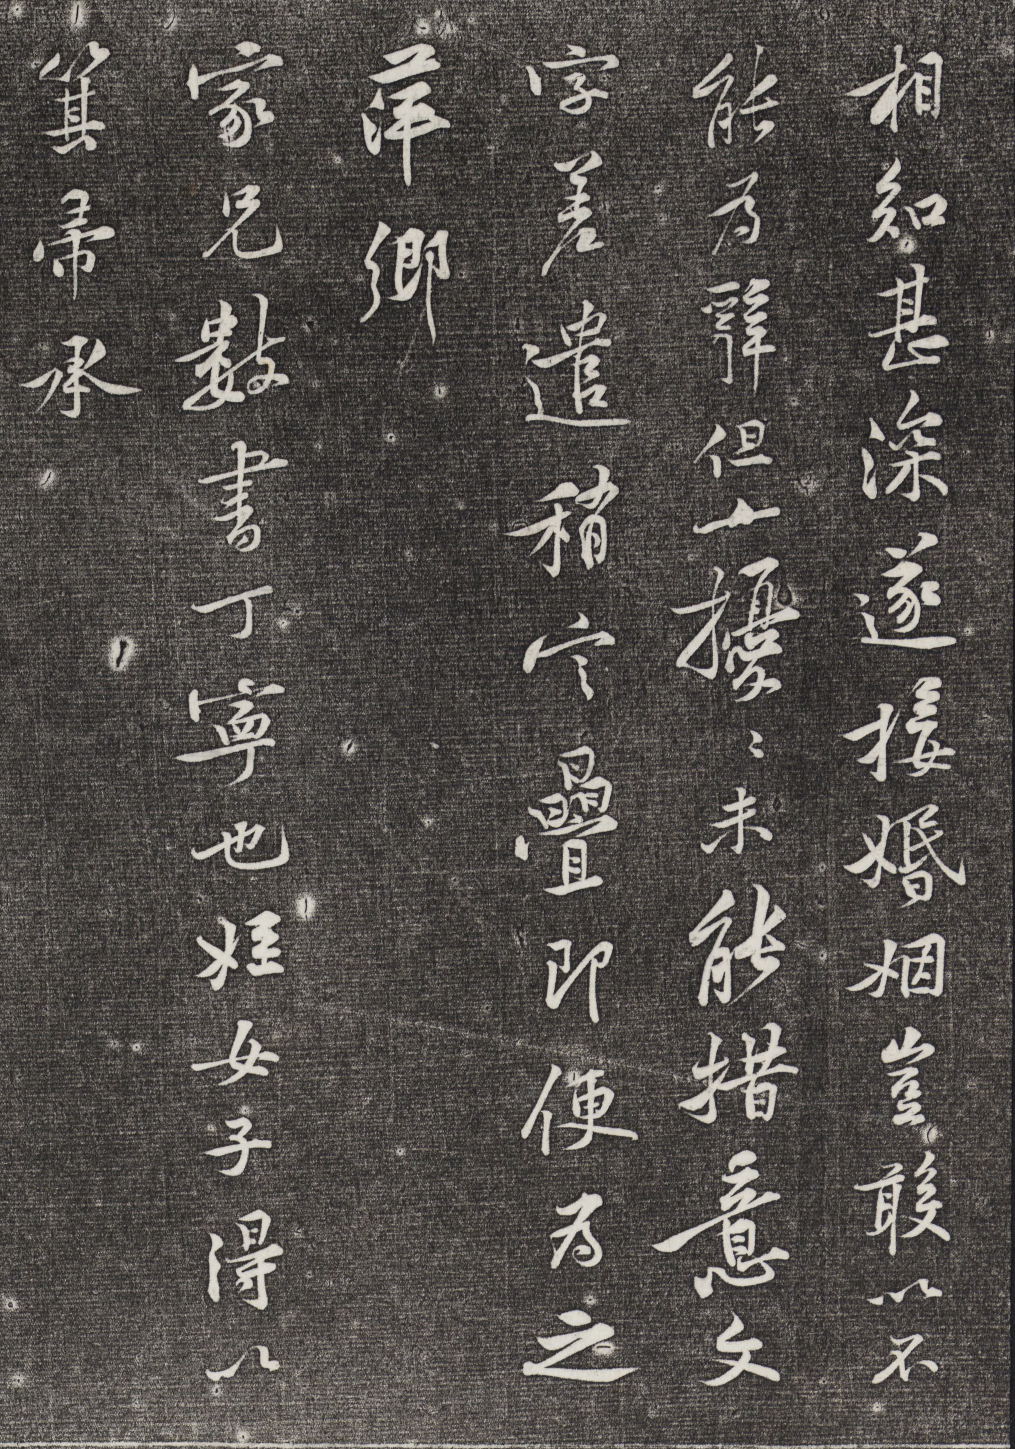 相知甚深遂接婚姻豈敢以不
能為辭但少擾〻未能措意文
字差遣稍定疊即便為之
萍鄉
家兄數書丁寧也姪女子得以
箕帚承